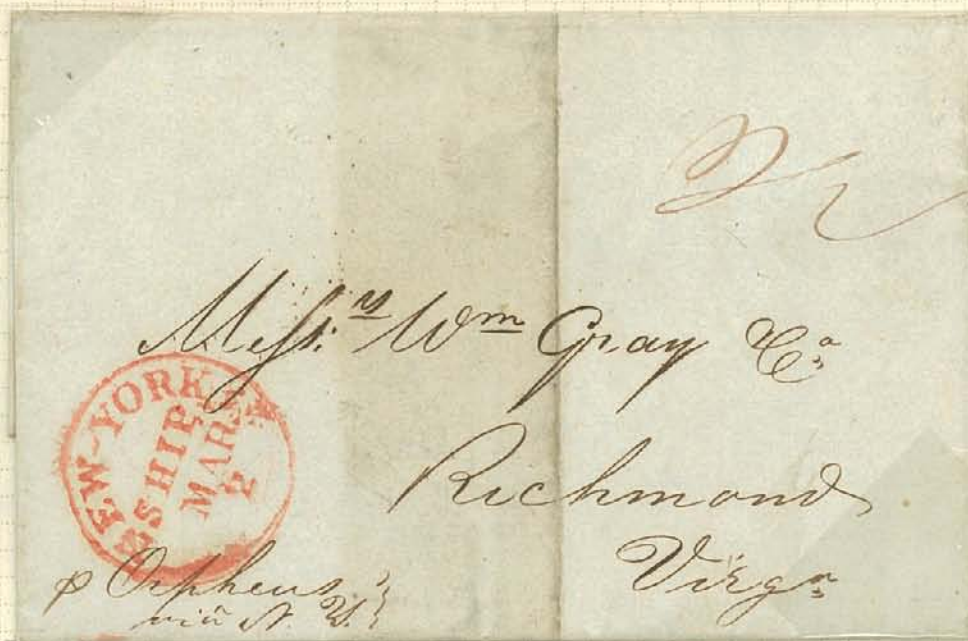 Messrs Wm Gray & Co
Richmond
Virga
NEW-YORK
SHIP
MAR
2
p Orpheus
via N. Y.